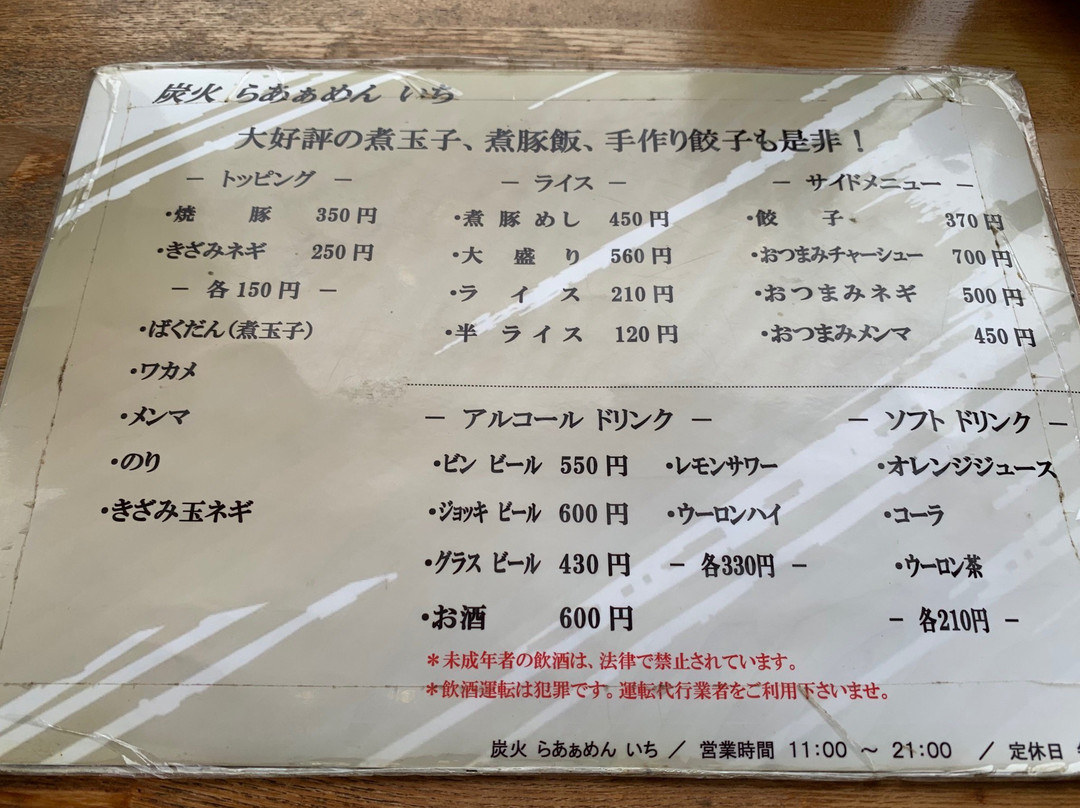 炭火 らあぁめん いち
大好評の煮玉子、煮豚飯、手作り餃子も是非！
－ トッピング －
・焼 豚 350円
・きざみネギ 250円
－ 各150円 －
・ばくだん(煮玉子)
・ワカメ
・メンマ
・のり
・きざみ玉ネギ
－ ライス －
・煮豚めし 450円
・大盛り 560円
・ライス 210円
・半ライス 120円
－ サイドメニュー －
・餃 子 370円
・おつまみチャーシュー 700円
・おつまみネギ 500円
・おつまみメンマ 450円
－ アルコール ドリンク －
・ビン ビール 550円
・ジョッキ ビール 600円
・グラス ビール 430円
・お酒 600円
・レモンサワー
・ウーロンハイ
－ 各330円 －
－ ソフト ドリンク －
・オレンジジュース
・コーラ
・ウーロン茶
－ 各210円 －
＊未成年者の飲酒は、法律で禁止されています。
＊飲酒運転は犯罪です。運転代行業者をご利用下さいませ。
炭火 らあぁめん いち ／ 営業時間 11:00 ～ 21:00 ／ 定休日